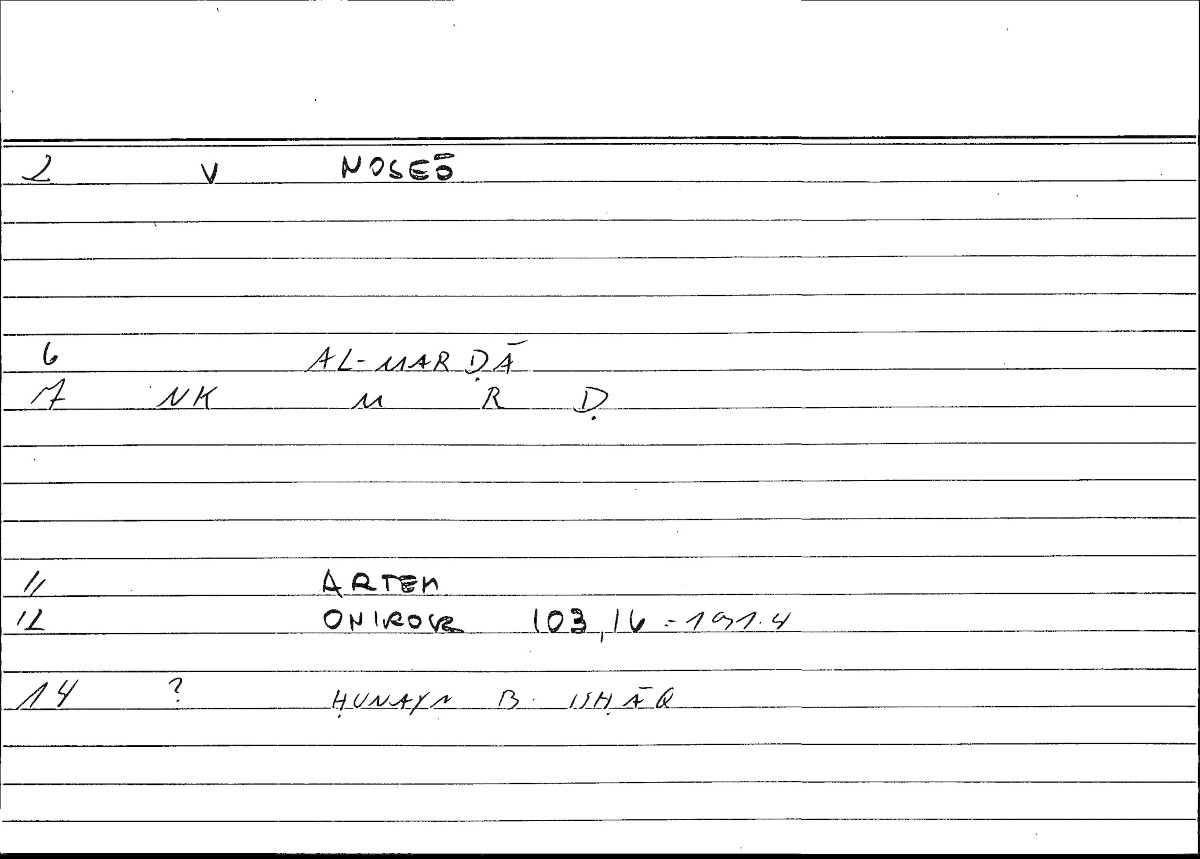 2 V NOSEŌ
6 AL-MARḌĀ
7 NK M R Ḍ
11 ARTEM
12 ONIROCR 103,16 = 191.4
14 ? ḤUNAYN B. ISḤĀQ